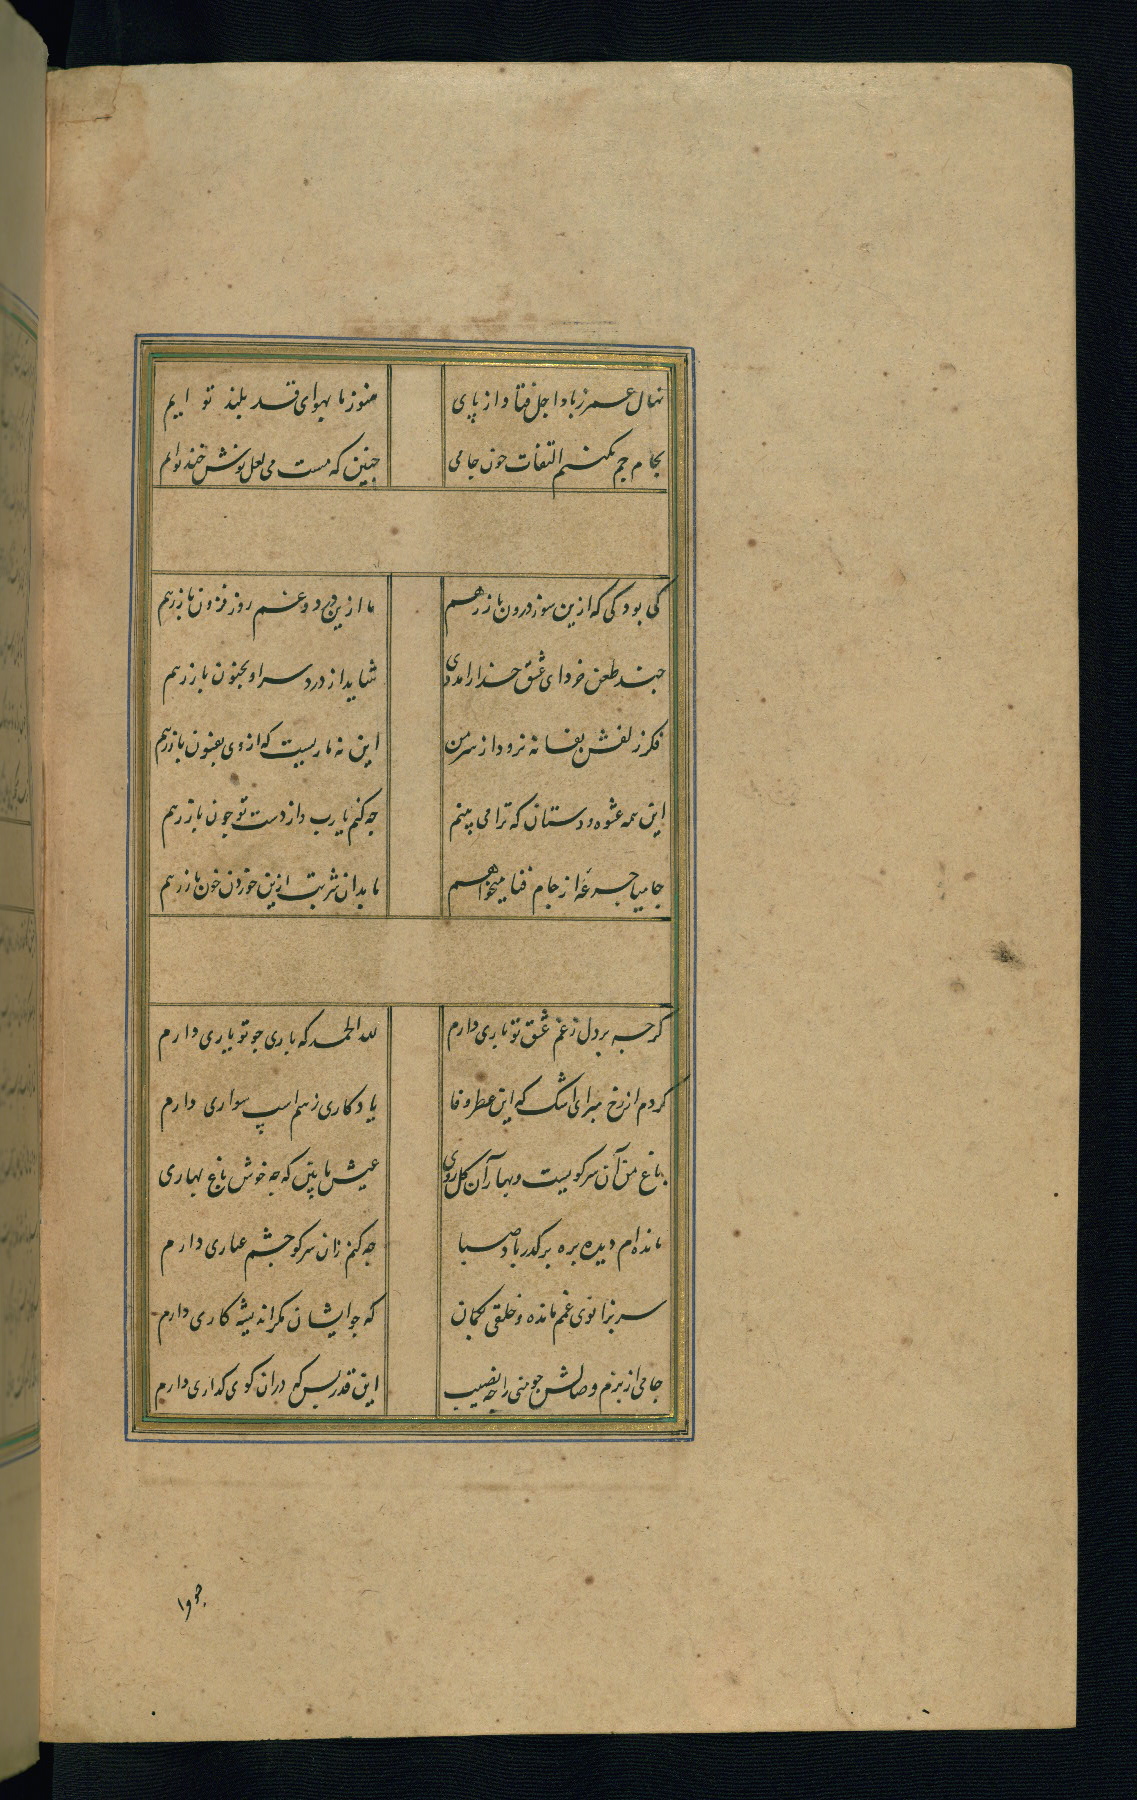 نهال عمر ز باد اجل فتاد از پای هنوز ما بهوای قد بلند تو ایم
بجام جم نکنیم التفات چون جامی چنین که مست می لعل نوش خند توایم
کی بود کی که ازین سوز درون باز رهم ما ازین درد و غم روز فزون باز رهم
چند طعن خرد ای عشق خدارا مددی شاید از درد سر او بجنون باز رهم
فکر زلفش بفسانه نرود از سر من این نه ماریست که از وی بفسون باز رهم
این همه عشوه و دستان که ترا می بینم چه کنم یا رب و از دست تو چون باز رهم
جامیا جرعهٔ از جام فنا میخواهم تا بدان شربت ازین خوردن خون باز رهم
گرچه بر دل ز غم عشق تو باری دارم لله الحمد که باری چو تو یاری دارم
کردم از رخ مبر ای اشک که این عطر وفا یادگاری ز سم اسپ سواری دارم
باغ من آن سر کویست و بهار آن گل روی عیش ما بین که چه خوش باغ بهاری
مانده‌ام دیده بره بر گذر باد صبا چه کنم زان سر کو چشم غباری دارم
سر بزانوی غم مانده و خلقی بگمان که چو ایشان مگر اندیشه کاری دارم
جامی از بزم وصالش چو منی را چه نصیب این قدر بس که دران کوی گذاری دارم